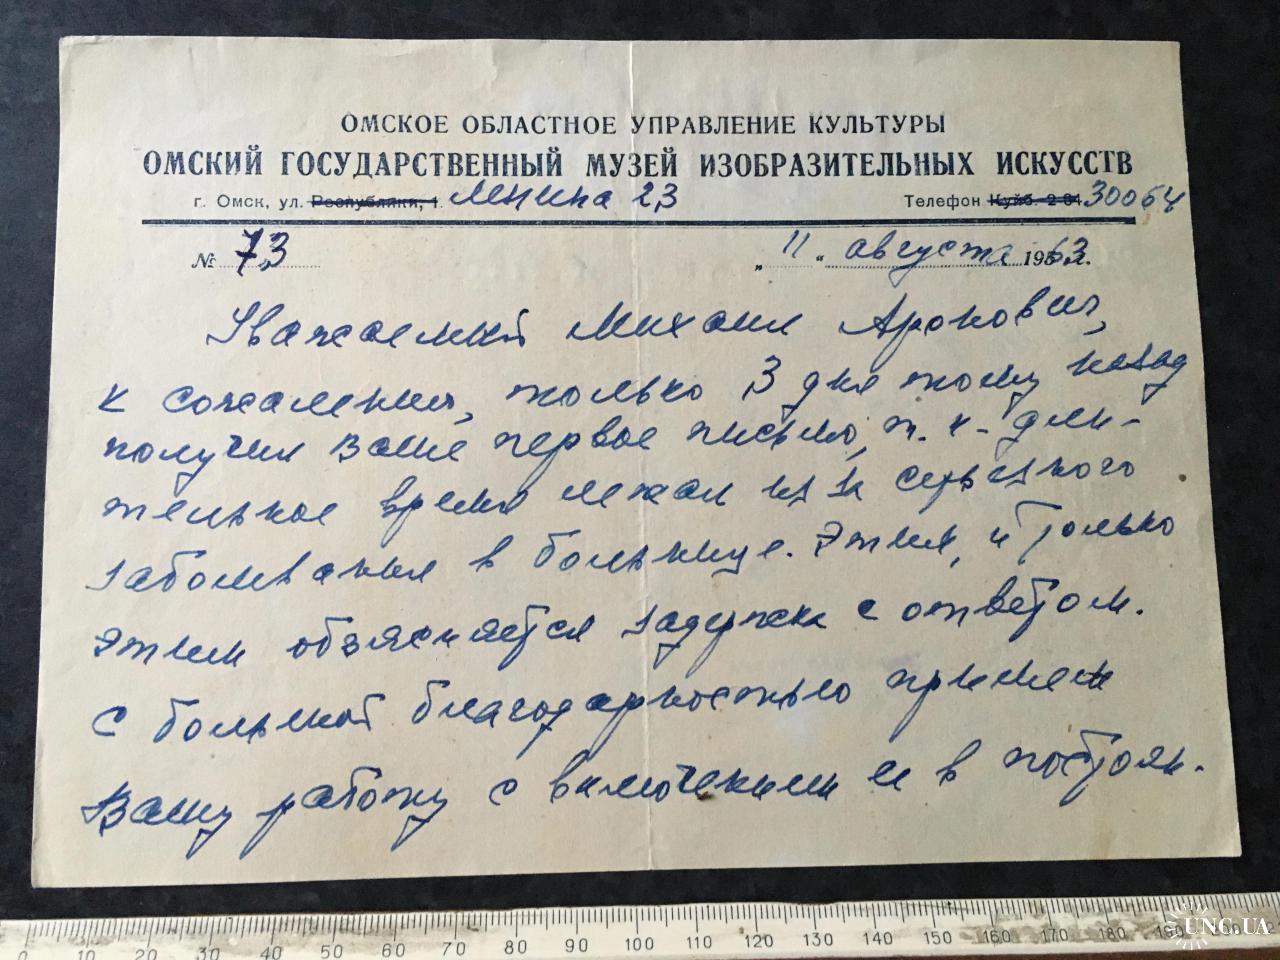 ОМСКОЕ ОБЛАСТНОЕ УПРАВЛЕНИЕ КУЛЬТУРЫ
ОМСКИЙ ГОСУДАРСТВЕННЫЙ МУЗЕЙ ИЗОБРАЗИТЕЛЬНЫХ ИСКУССТВ
г. Омск, ул. Республики, 1. Ленина 23 Телефон Куйб. 30064
№ 73 „11“ августа 1963 г.
Уважаемый Михаил Аронович,
к сожалению, только 3 дня тому назад
получил Ваше первое письмо, т. к. дли-
тельное время лежал из за серьезного
заболевания в больнице. Этим, и только
этим объясняется задержка с ответом.
С большой благодарностью примем
Вашу работу с включением ее в постоян-
0 10 20 30 40 50 60 70 80 90 100 110 120 130 140 150 160 170 180 190
UNC.UA